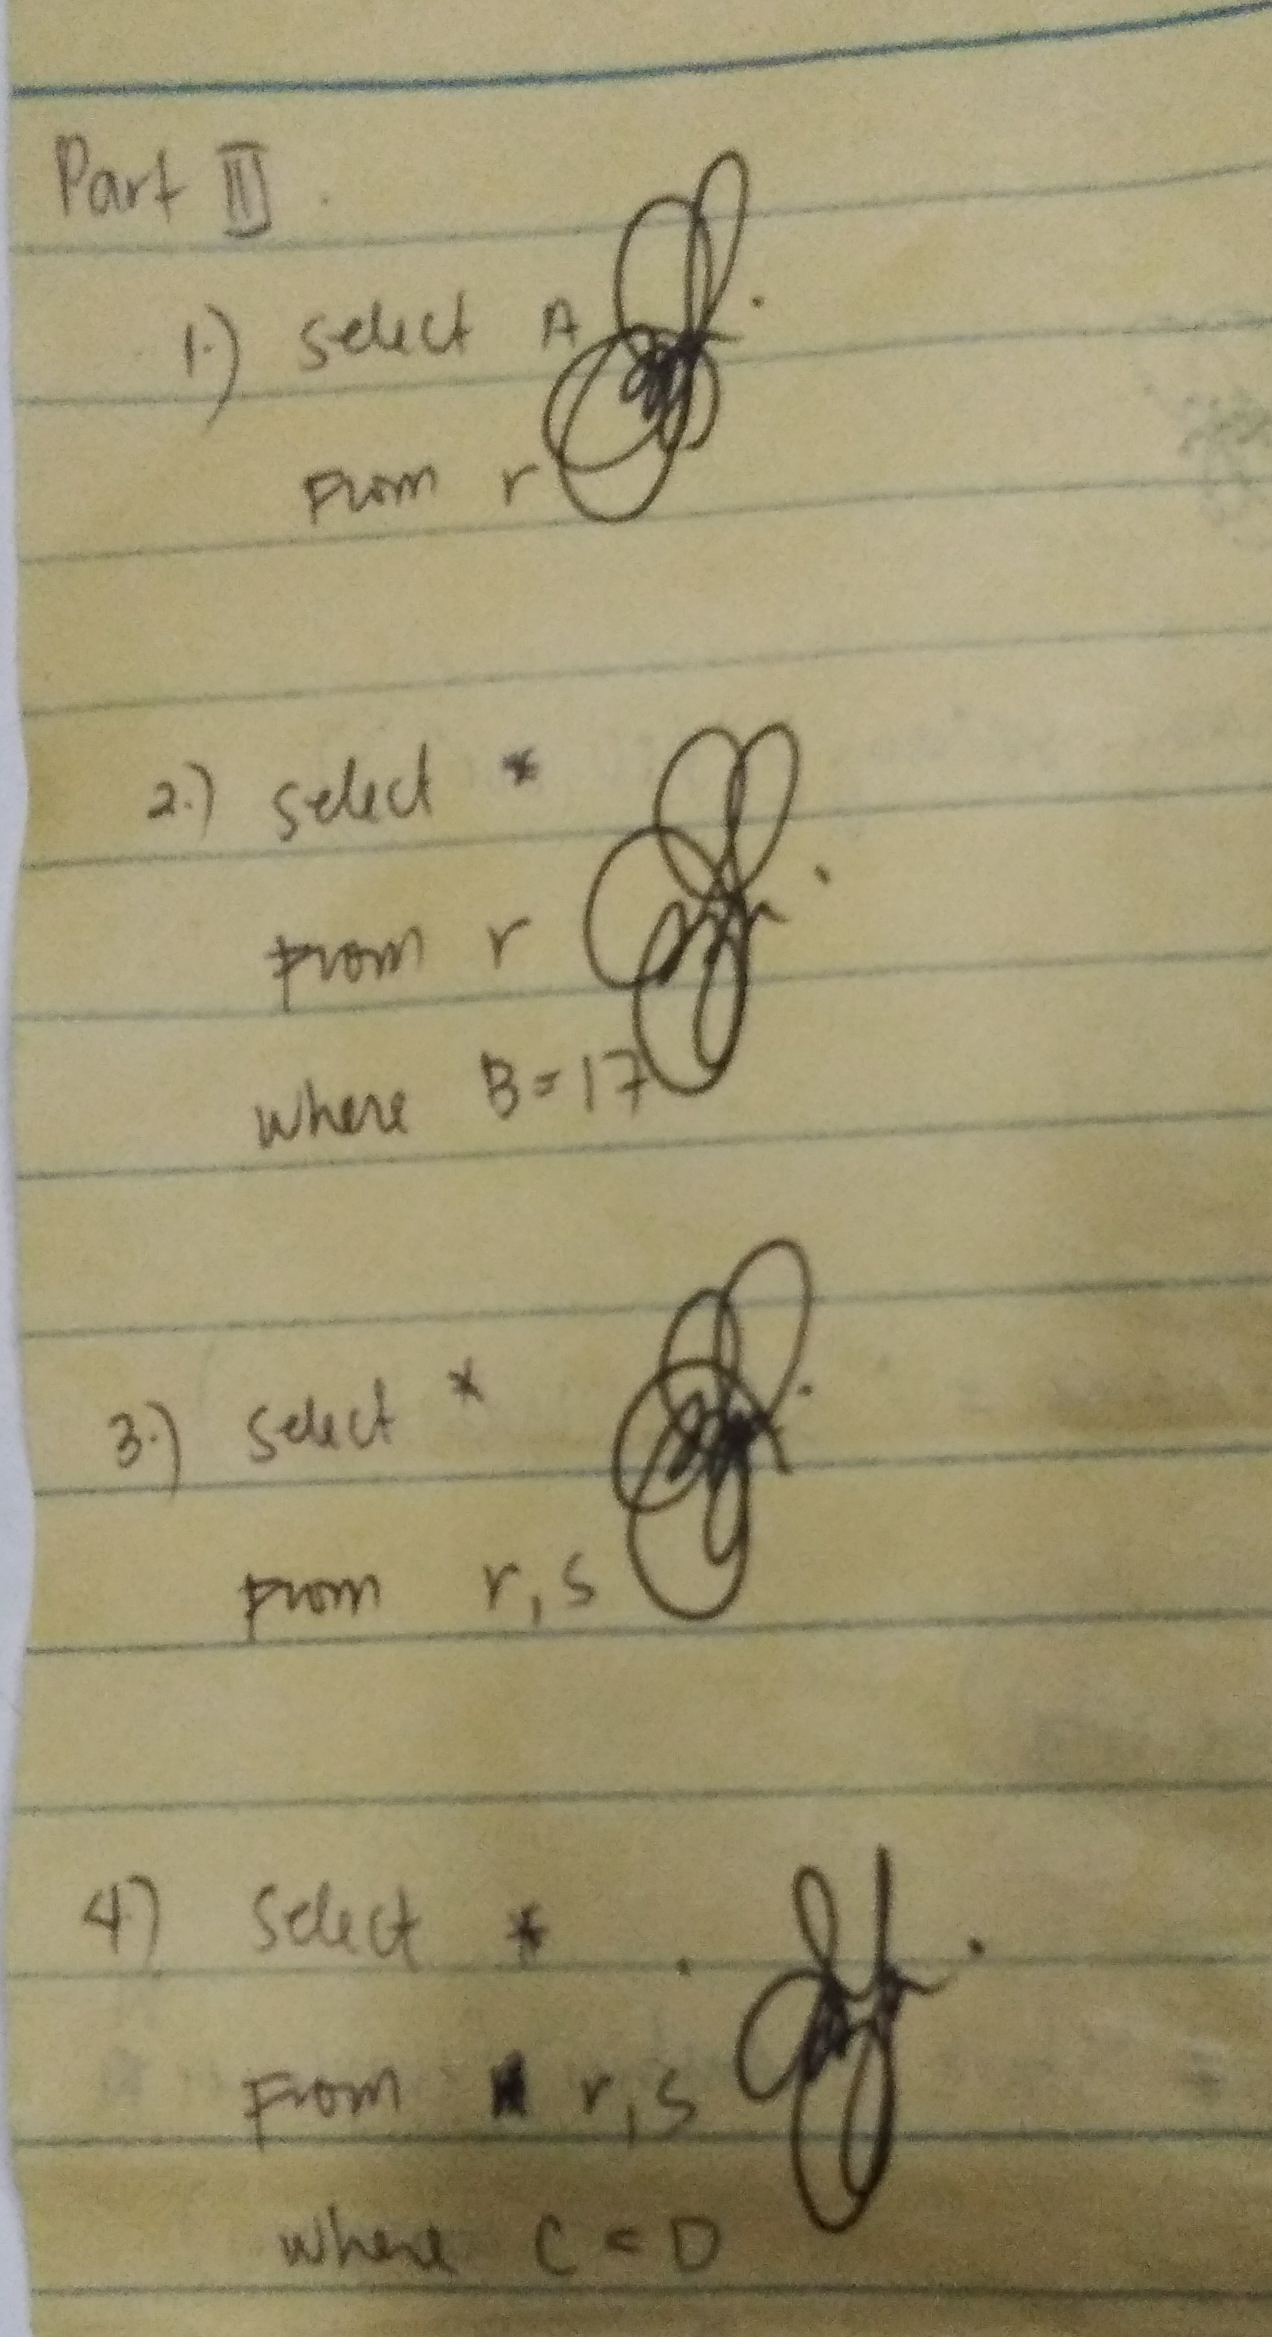 Part III.
1.) select A
From r
2.) select *
From r
where B=17
3.) select *
From r, s
4.) Select *
From r, s
where C = D